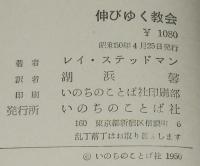 伸びゆく教会
¥ 1080
昭和50年4月25日発行
著者 レイ・ステッドマン
訳者 湖浜馨
印刷 いのちのことば社印刷部
発行所 いのちのことば社
160 東京都新宿区信濃町6
乱丁落丁はお取り替えします
©いのちのことば社 1950